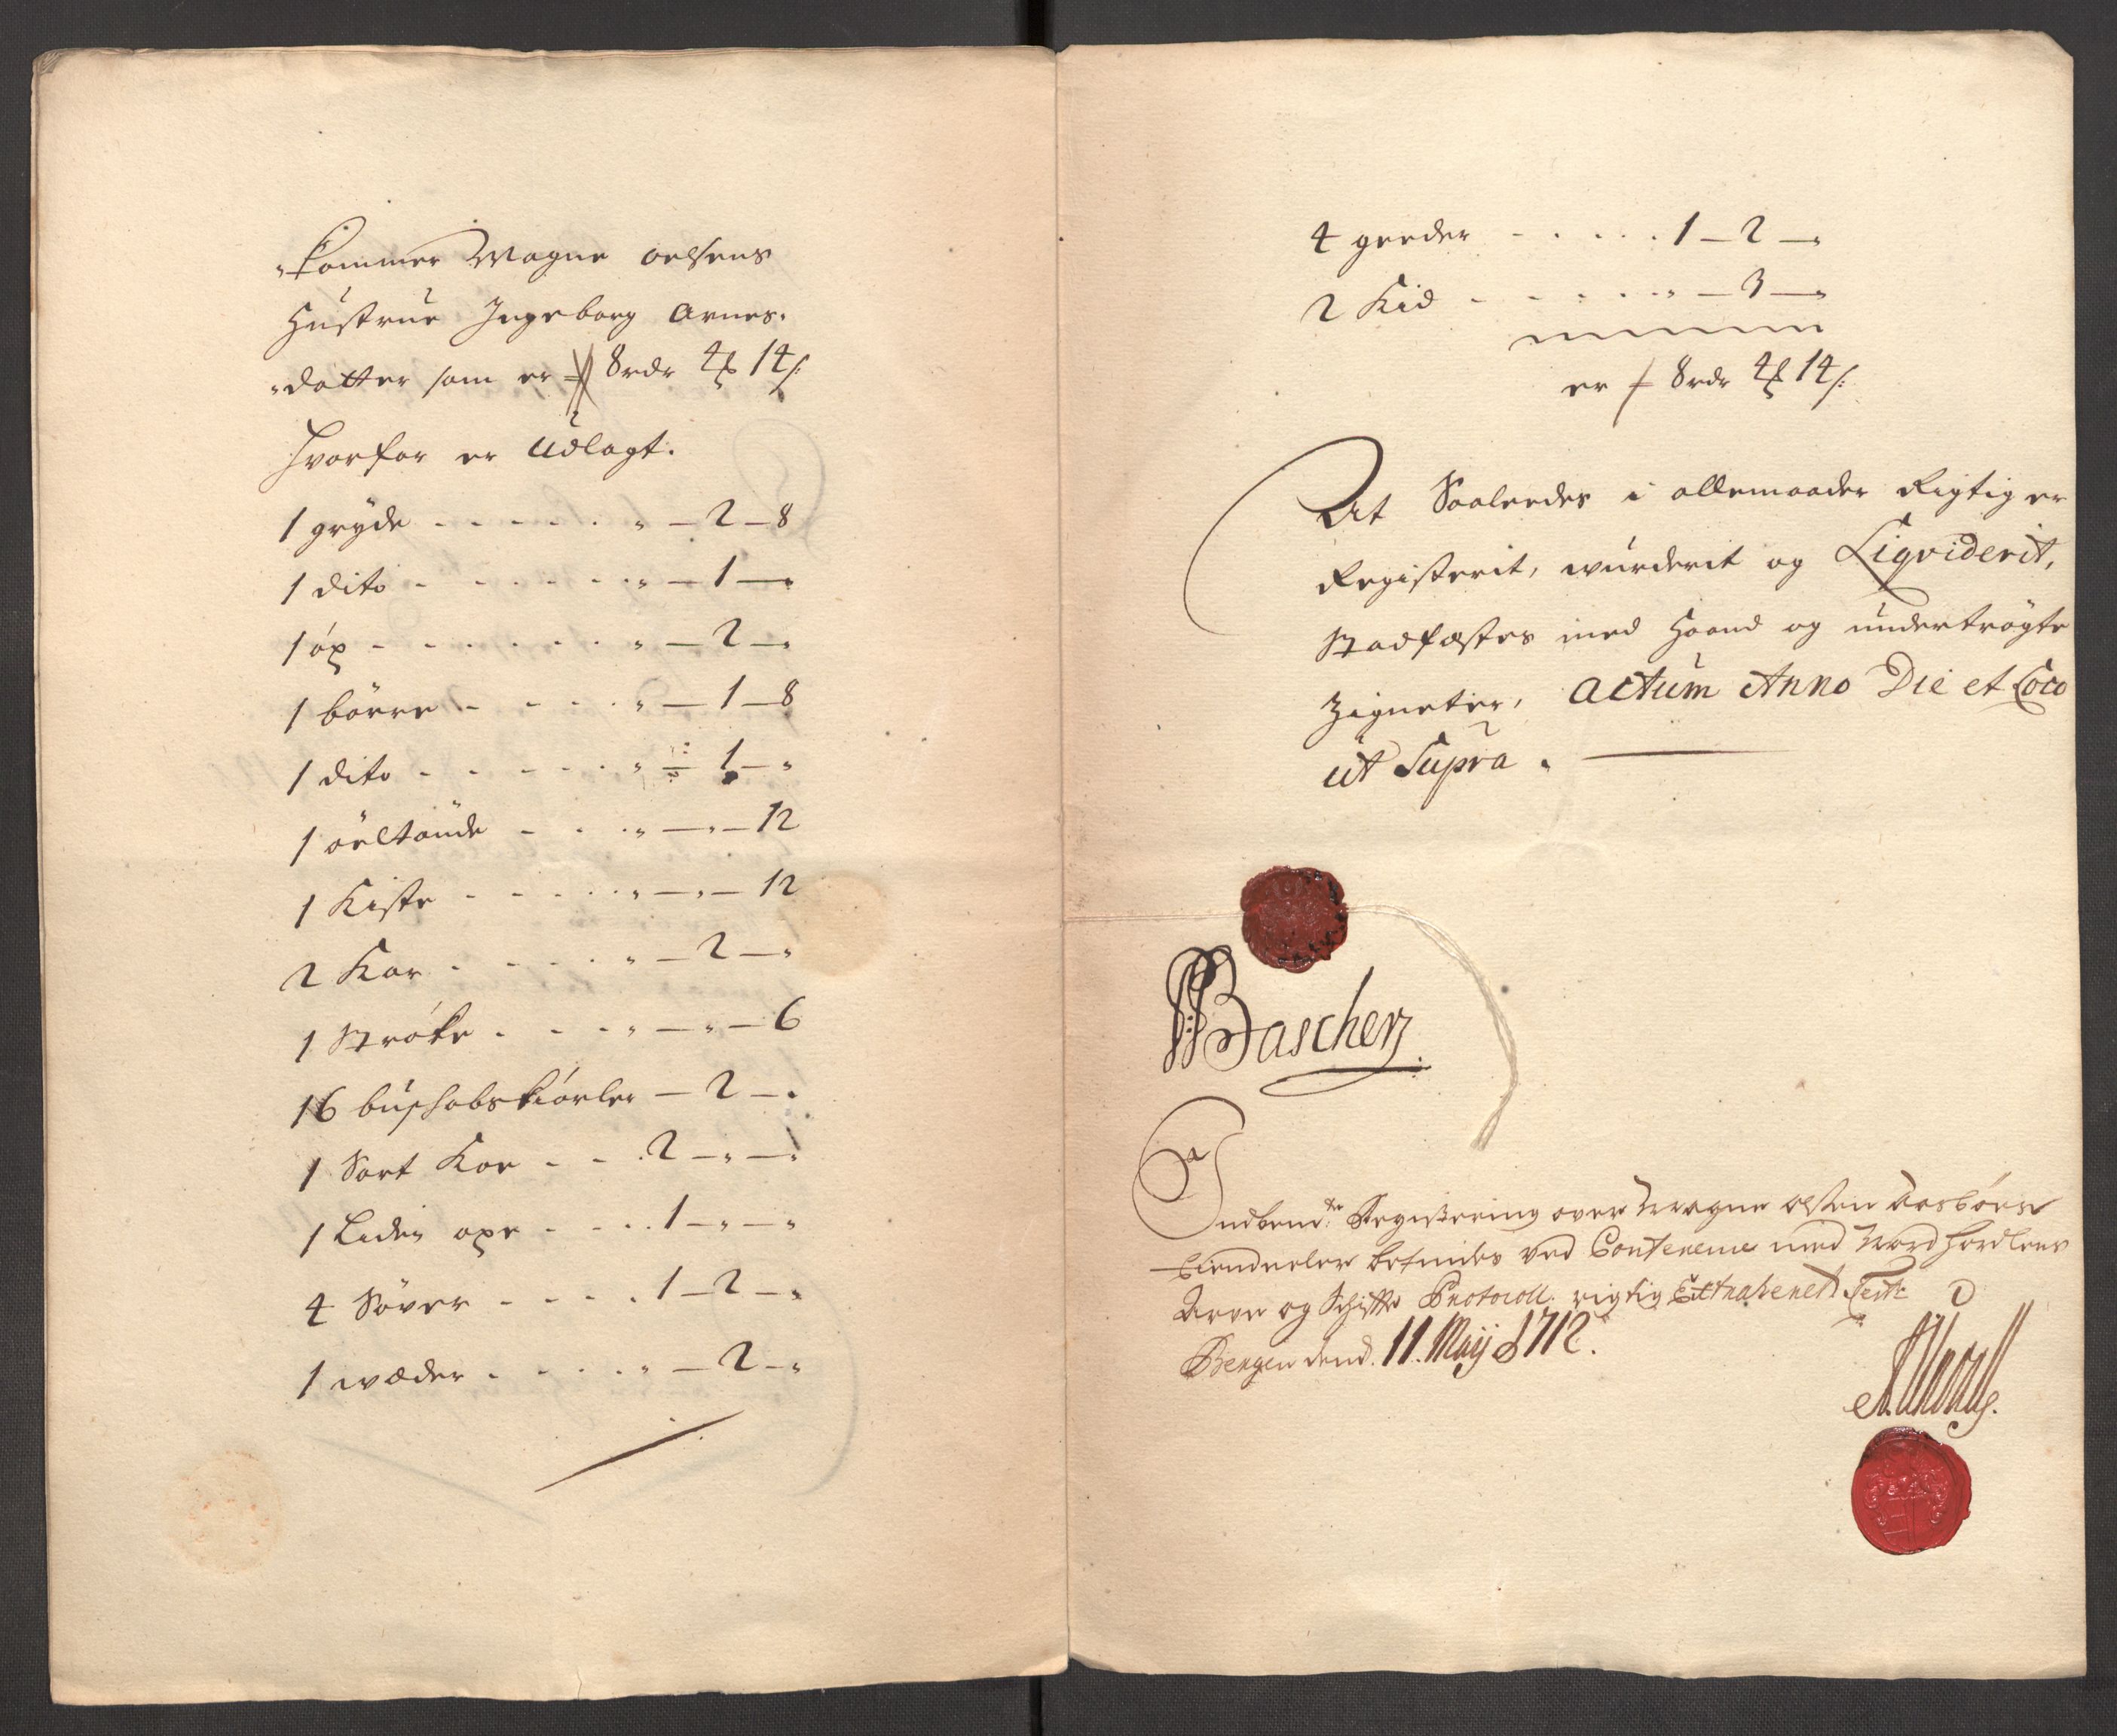 kommer Magne oelsens
Hustrue Ingeborg Arnes-
datter som er 8 rdr 4 ℔ 14 s:
Hvorfor er Udlagt.
1 gryde - - - - - " — 2 — 8
1 dito - - - - - " — 1 — "
1 öx - - - - - " — 2 — "
1 börre - - - - " — 1 — 8
1 dito - - - - - " — 1 — "
1 öeltönde - - - " — " — 12
1 Kiste - - - - - " — " — 12
2 Kar - - - - - " — 2 — "
1 Ströke - - - - " — " — 6
16 buschabs kiörler — 2 — "
1 Sort Koe - - - 2 — " — "
1 Liden oxe - - - 1 — " — "
4 Söver - - - - 1 — 2 — "
1 wæder - - - - " — 2 — "
4 geeder - - - - 1 — 2 — "
2 Kid - - - - - " — 3 — "
er 8 rdr 4 ℔ 14 s:
At Saaleedes i allemaader Rigtig er
Registerit, wurderit og Liqviderit,
Stadfæstes med Haand og undertrögte
Zigneter, Actum Anno Die et Loco
ut Supra.
Bascherz
Indbem:te Registering over Magne olsen
Eiendeeler befindes ved Conference med Nordhordlens
Arve og Schifte Protocoll rigtig Extraheret Test:
Bergen dend. 11. Maij 1712.